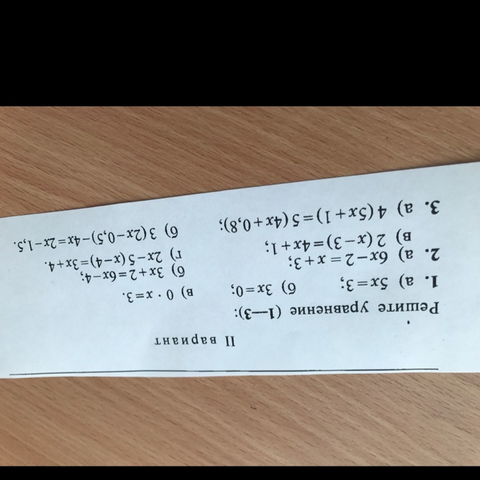 II вариант
Решите уравнение (1—3):
1. а) 5x=3; б) 3x=0; в) 0 · x=3.
2. а) 6x−2=x+3; б) 3x+2=6x−4;
в) 2(x−3)=4x+1; г) 2x−5(x−4)=3x+4.
3. а) 4(5x+1)=5(4x+0,8); б) 3(2x−0,5)−4x=2x−1,5.